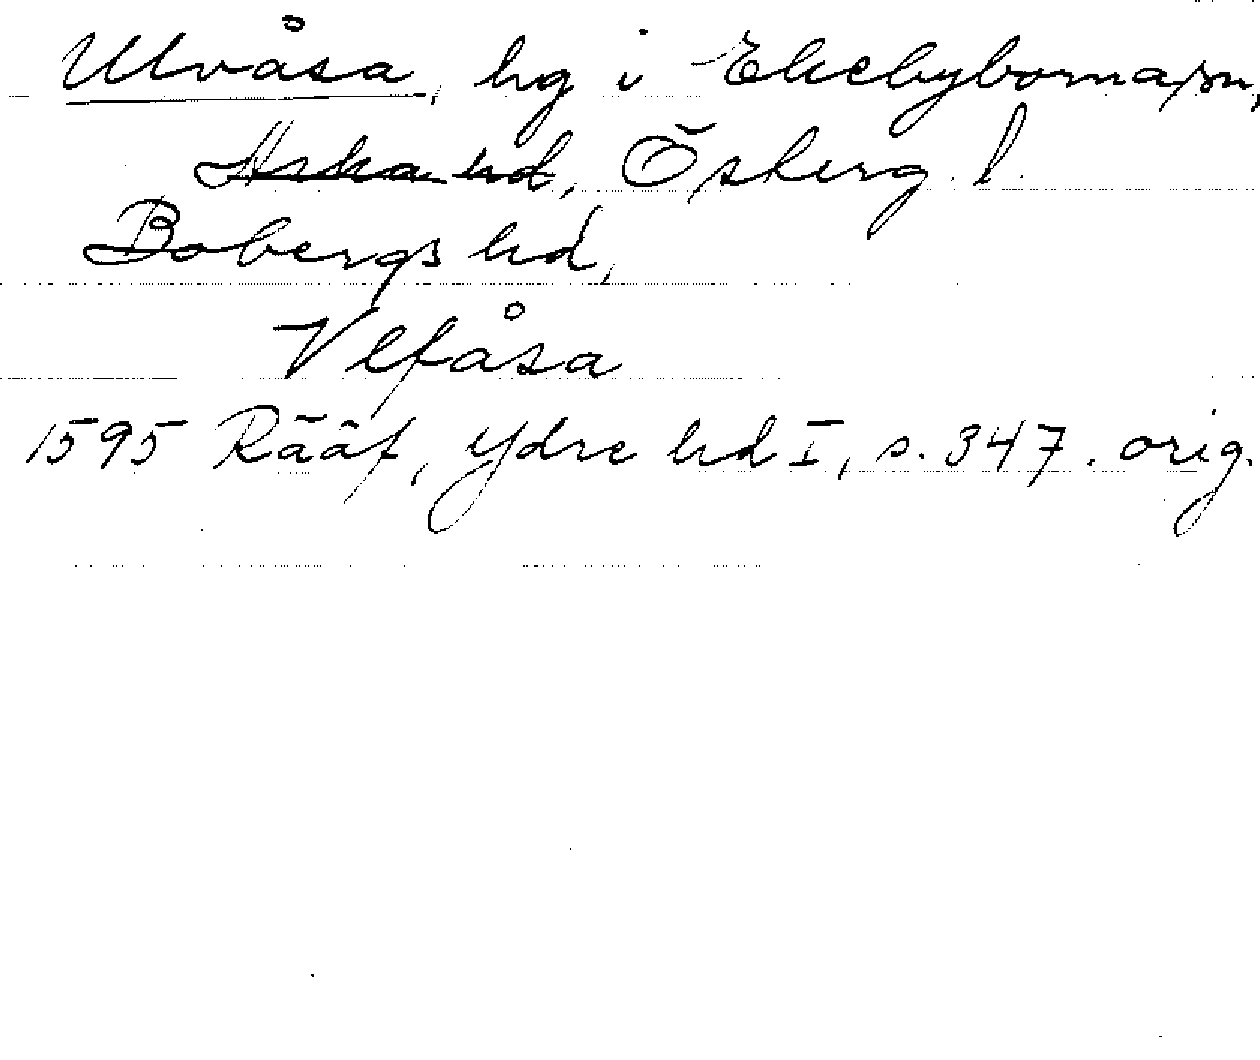 Ulvåsa, hg i Ekebyborna sn,
Aska hd, Österg. l.
Bobergs hd,
Vlfåsa
1595 Rääf, Ydre hd I, s. 347. orig.